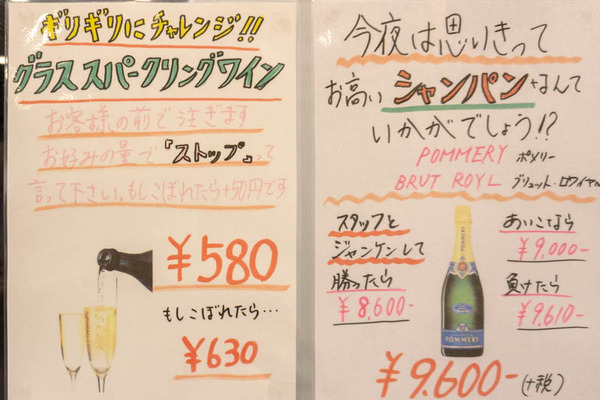 ギリギリにチャレンジ!!
グラススパークリングワイン
お客様の前で注ぎます
お好みの量で「ストップ」って
言って下さい。もしこぼれたら+50円です
¥580
もしこぼれたら…
¥630
今夜は思いきって
お高いシャンパンなんて
いかがでしょう!?
POMMERY ポメリー
BRUT ROYL ブリュット・ロワイヤル
スタッフと
ジャンケンして
勝ったら
¥8,600-
あいこなら
¥9,000-
負けたら
¥9,610-
POMMERY
¥9,600-(+税)